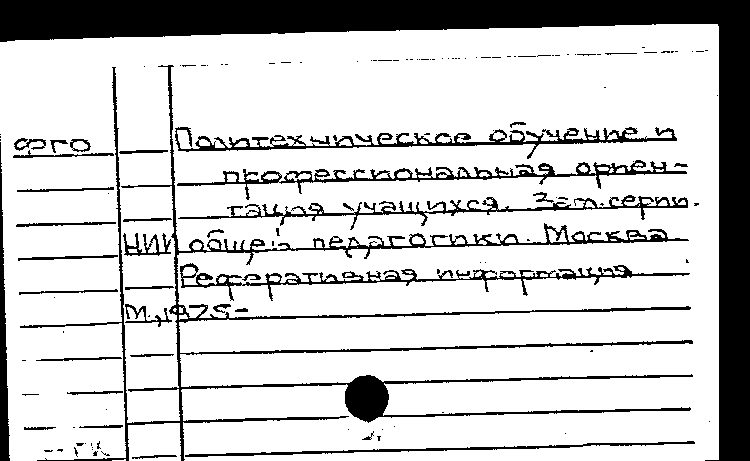 ФГО Политехническое обучение и
профессиональная ориен-
тация учащихся. Заг.серии.
НИИ общей педагогики. Москва
Реферативная информация
М., 1975-
ГК